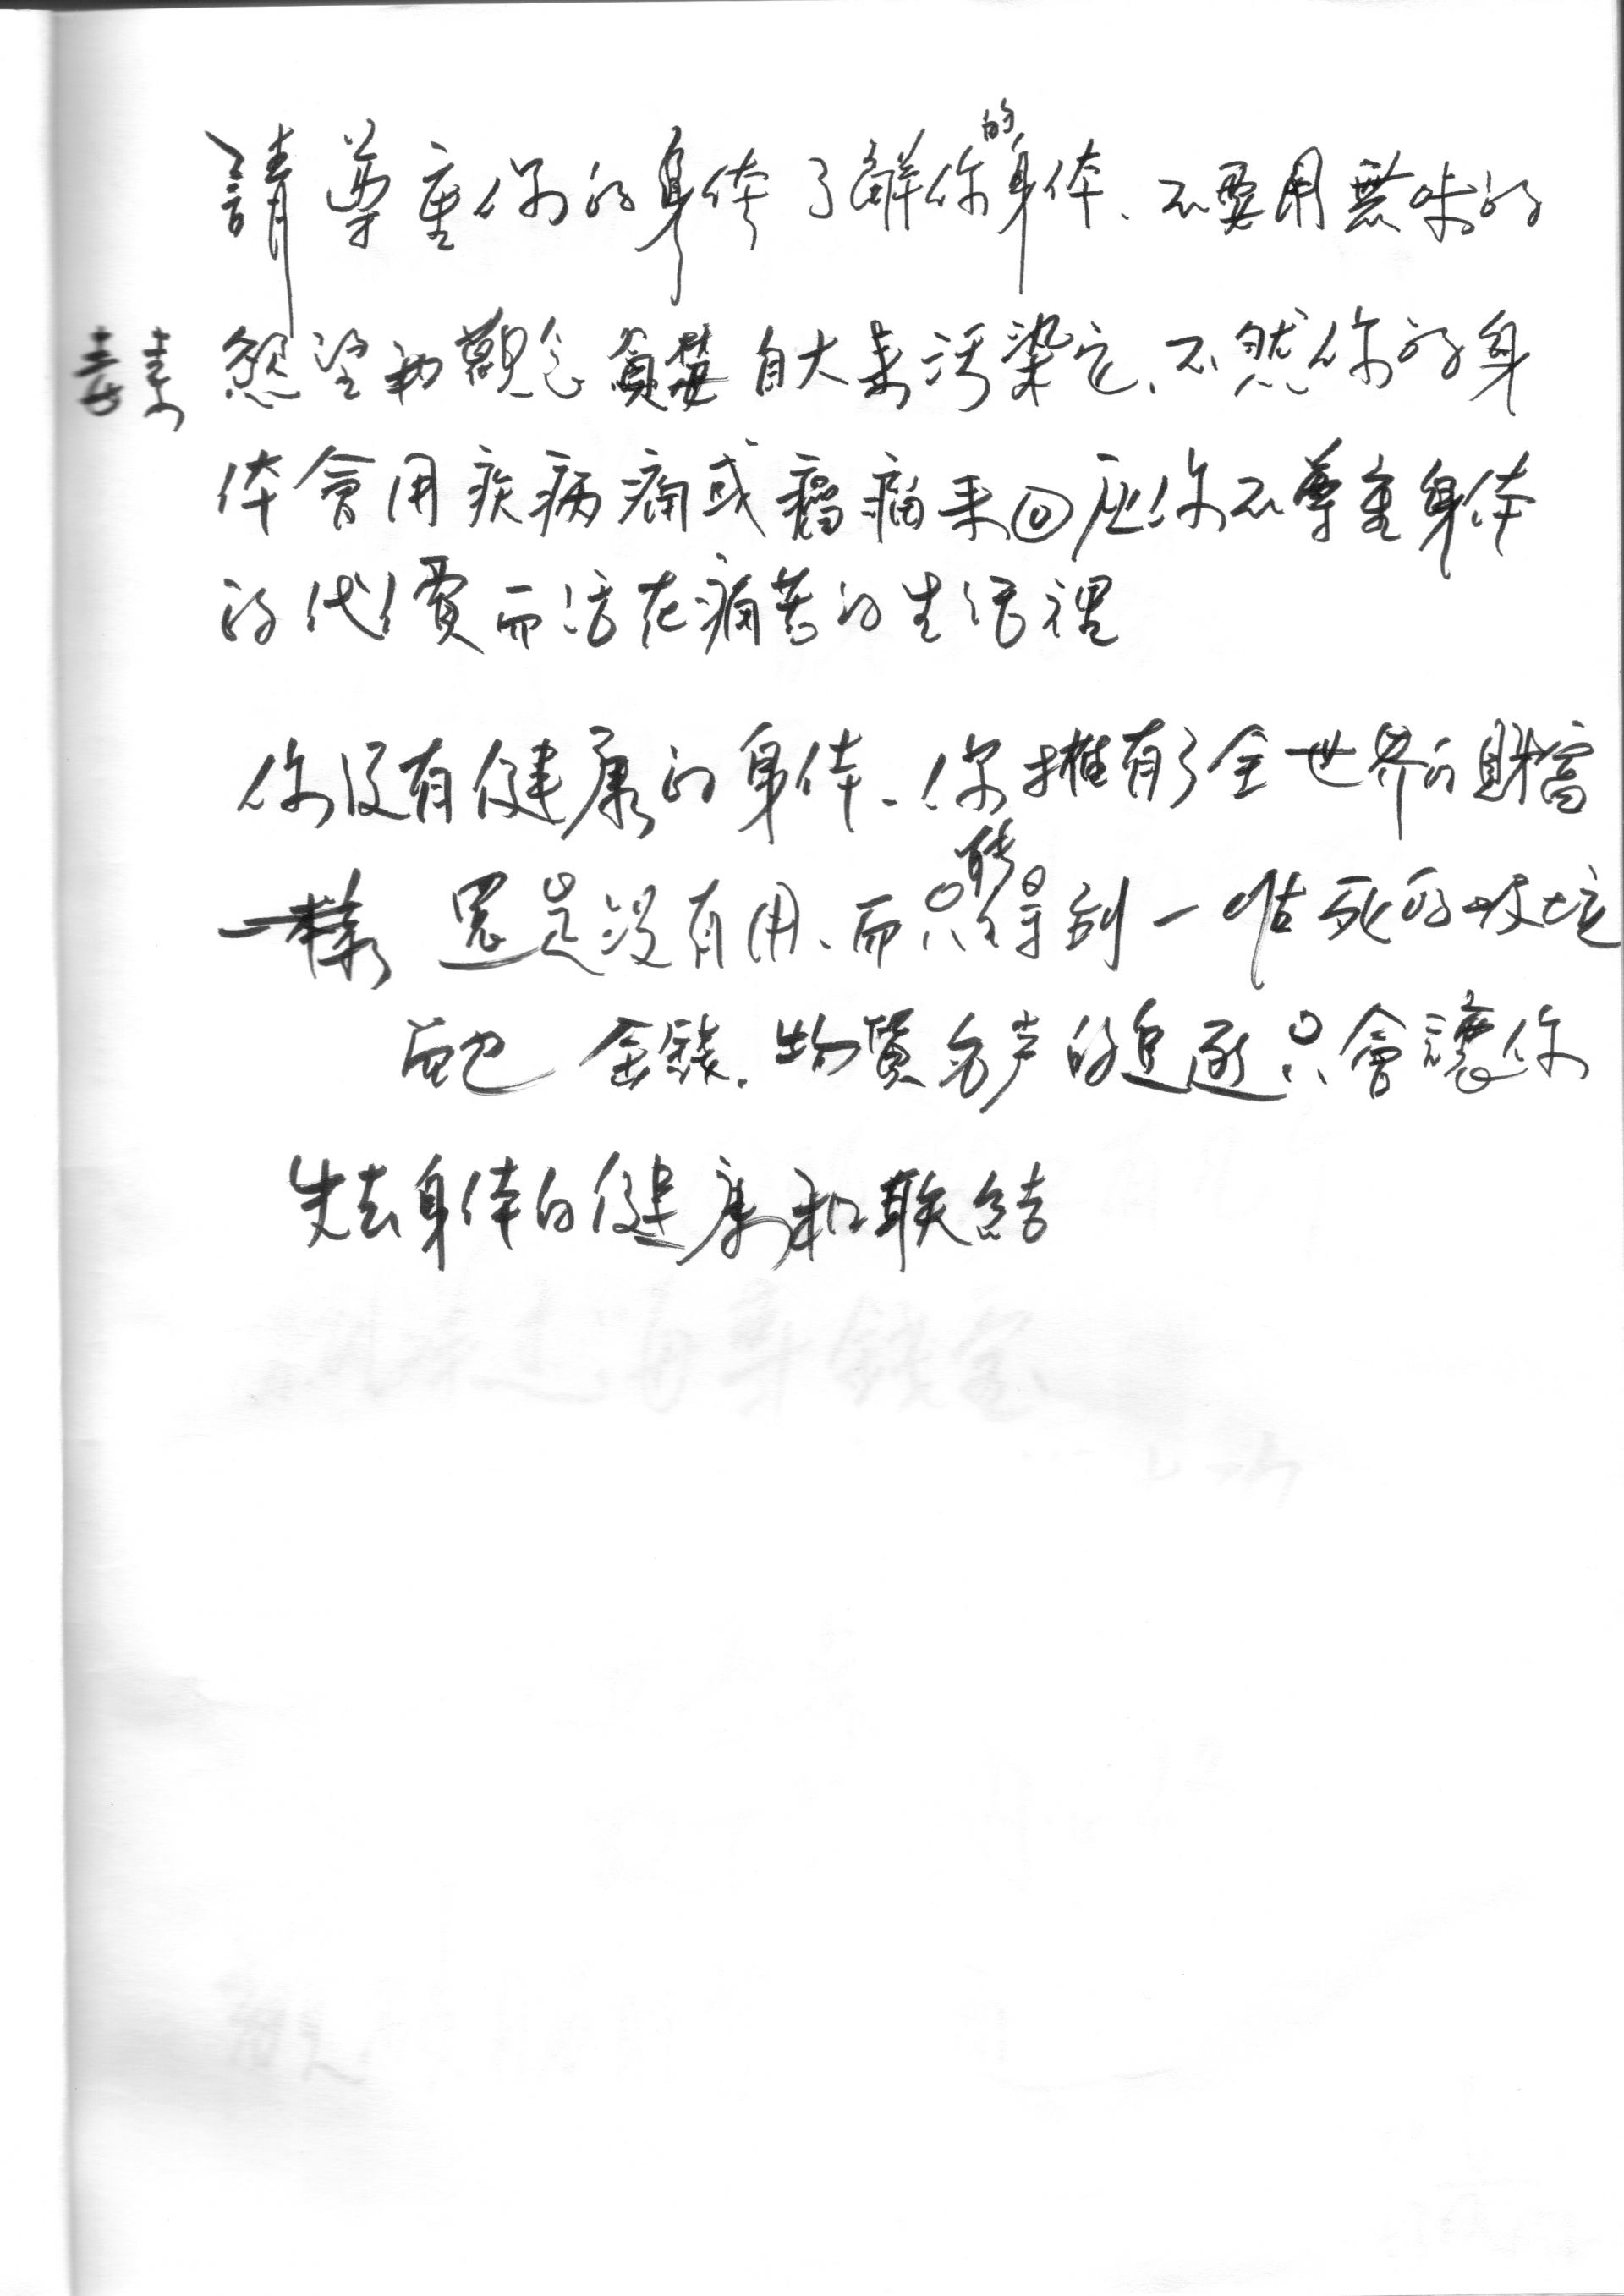 請尊重你的身体了解你的身体、不要用無味的
毒素 慾望和觀念貪婪自大来污染它、不然你的身
体會用疾病痛或癌瘤来回应你不尊重身体
的代價而活在痛苦的生活裡
你沒有健康的身体、你擁有了全世界的財富
一樣 還是沒有用、而只能得到一堆死的垃圾
而已 金錢.物質名声的追逐只會讓你
失去身体的健康和联結